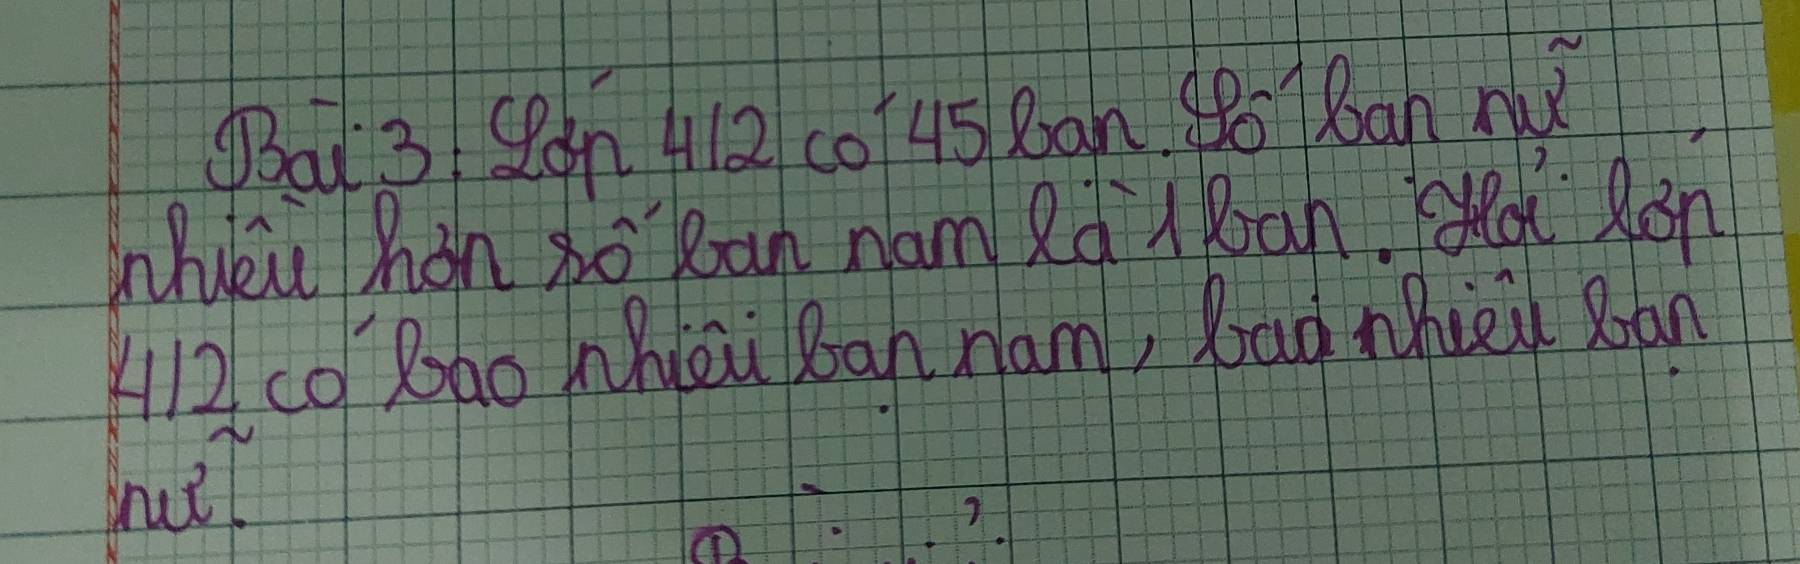 Bài 3: Lớp 4/2 có 45 bạn. Số bạn nữ
nhiều hơn số bạn nam là 1 bạn. Hỏi lớp
4/2 có bao nhiêu bạn nam, bao nhiêu bạn
nữ.